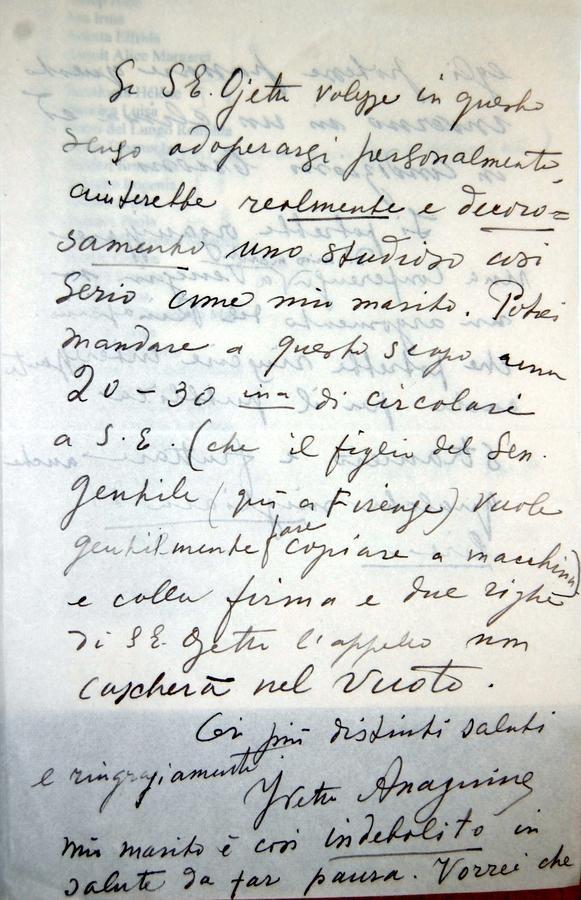 Se S.E. Ojetti volesse in questo
senso adoperarsi personalmente,
aiuterebbe realmente e decoro=
samente uno studioso così
serio come mio marito. Potrei
mandare a questo scopo una
20 - 30 ina di circolari
a S.E. (che il figlio del Sen.
Gentile (qui a Firenze) vuole
gentilmente far copiare a macchina)
e colla firma e due righe
di S.E. Ojetti l'appello non
cascherà nel vuoto.
Coi più distinti saluti
e ringraziamenti
Anagnine
mio marito è così indebolito in
salute da far paura. Vorrei che